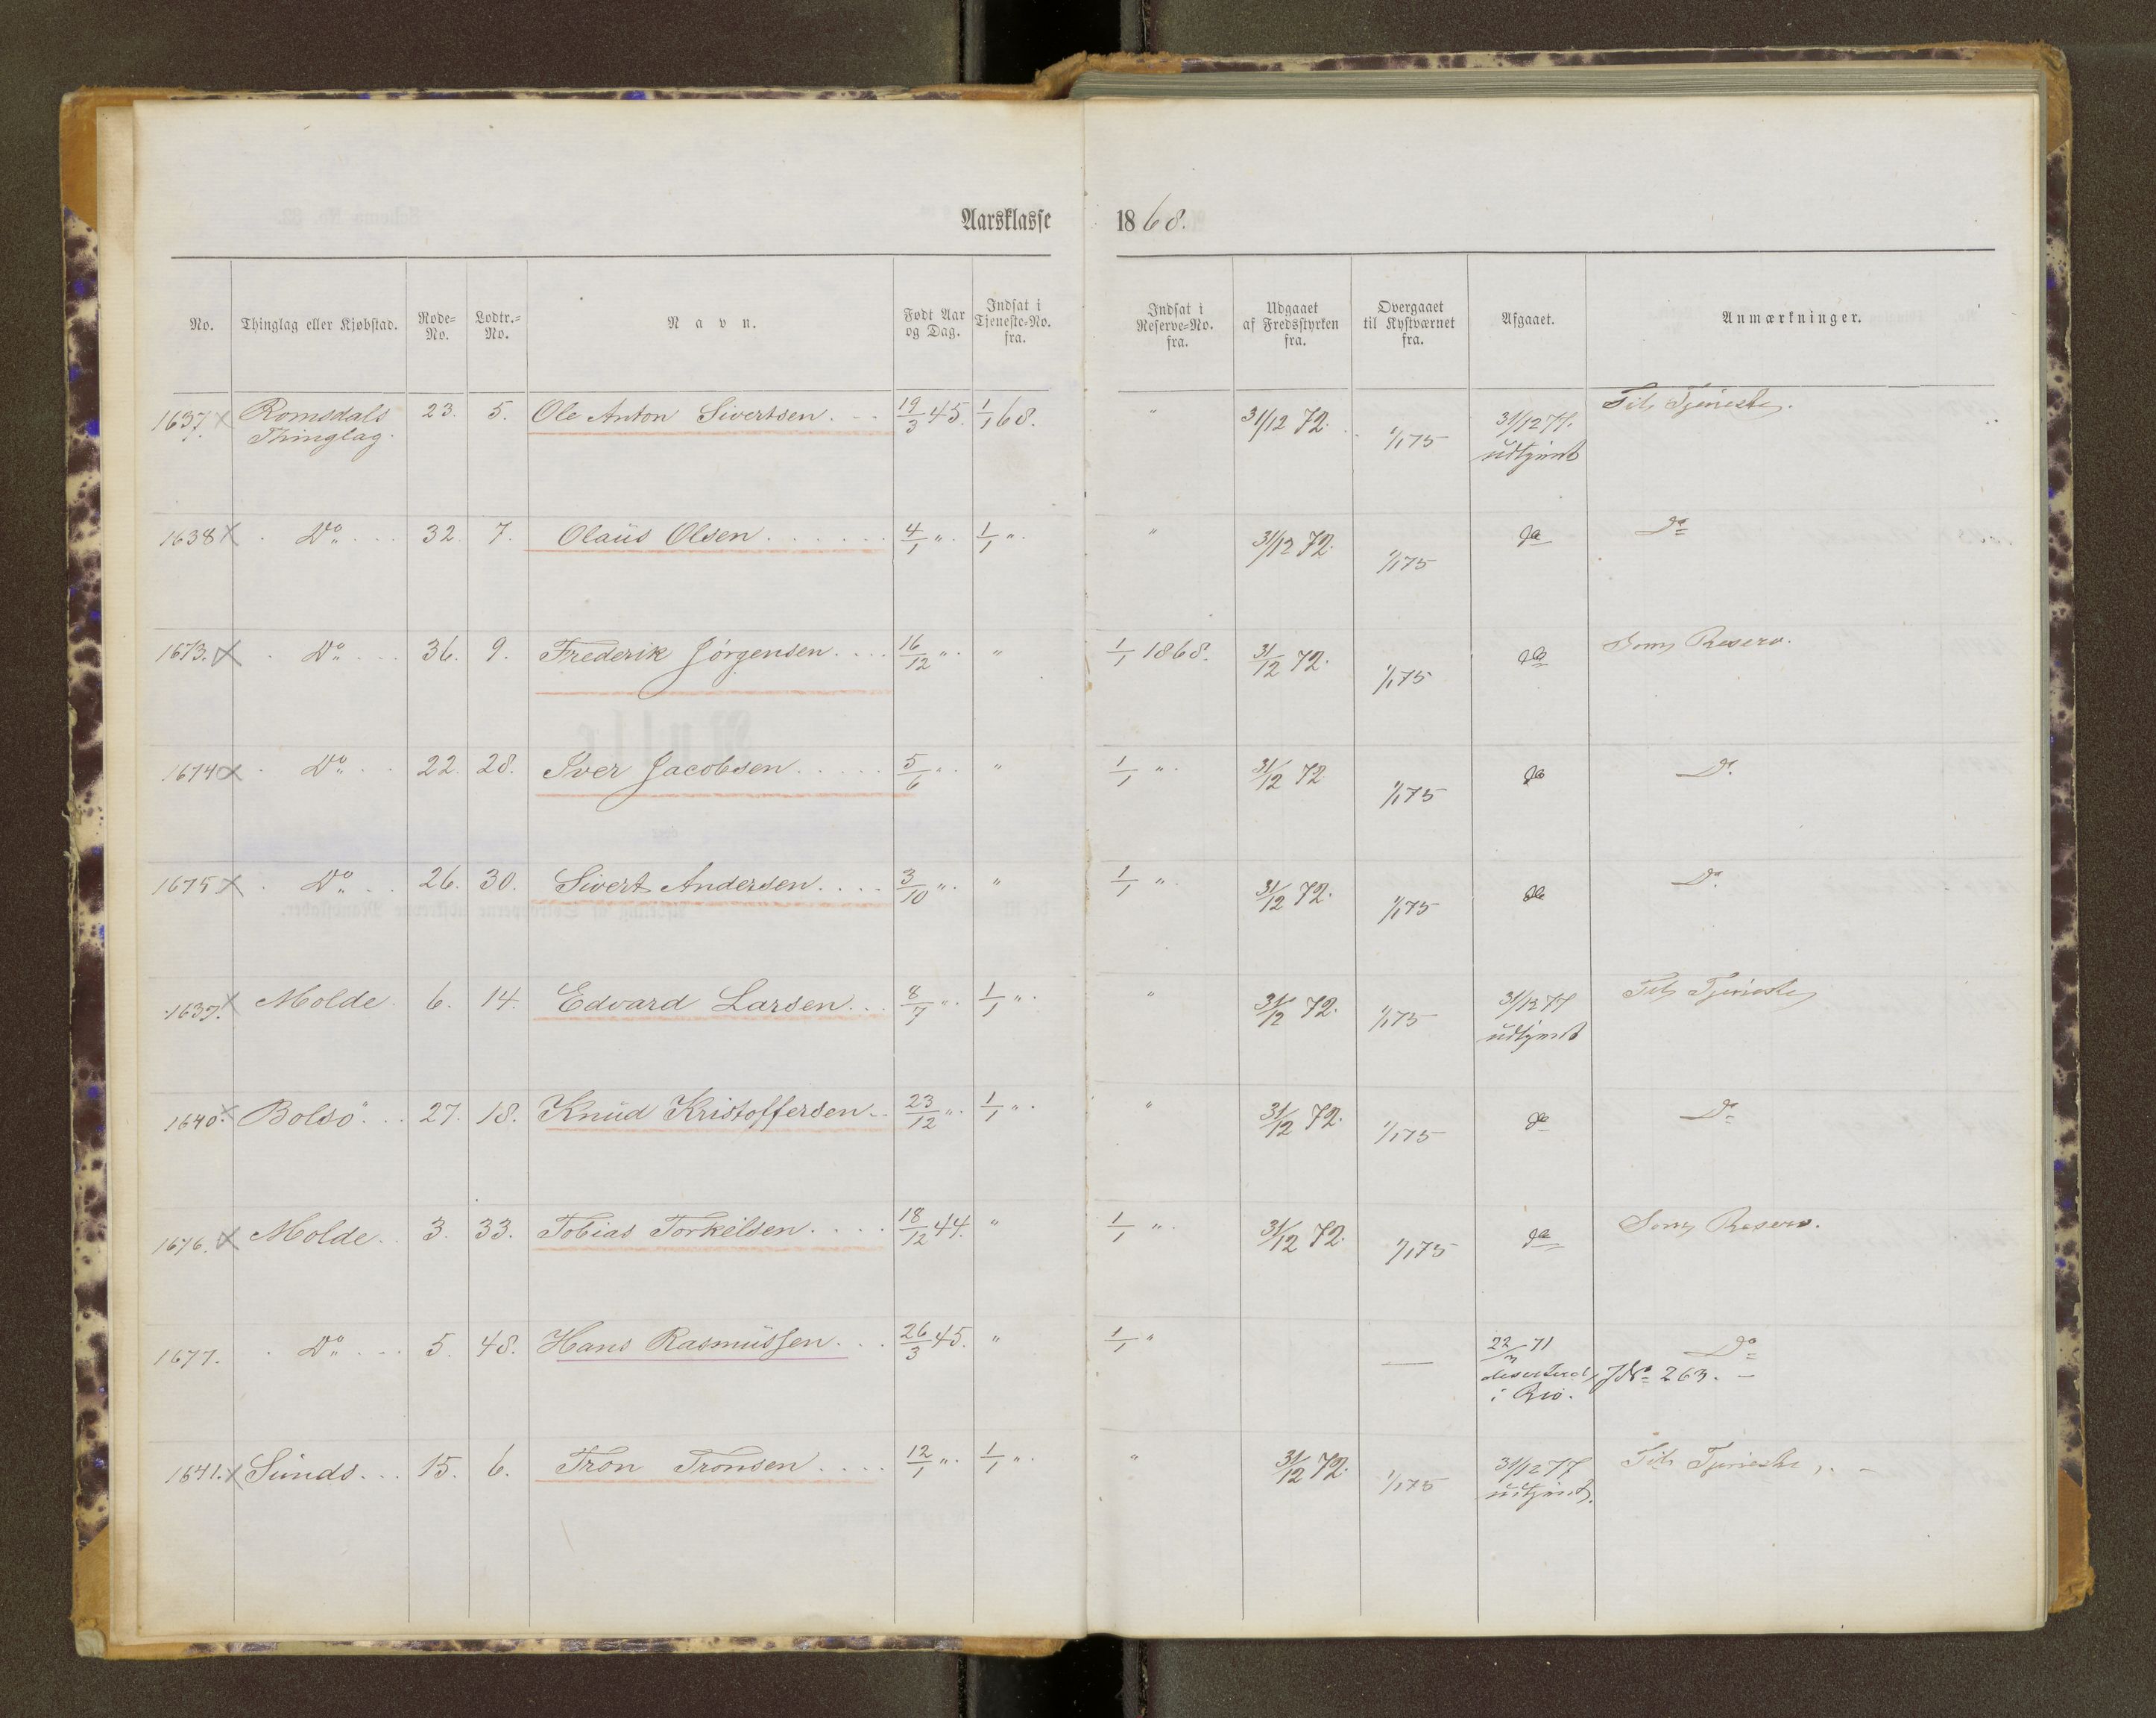 Aarsklasse 1868.
No. Thinglag eller Kjøbstad. Rode-No. Lodtr.-No. Navn. Født Aar og Dag. Indsat i Tjeneste-No. fra. Indsat i Reserve-No. fra. Udgaaet af Fredsstyrken fra. Overgaaet til Kystværnet fra. Afgaaet. Anmærkninger.
1637. x Romsdals Thinglag. 23. 5. Ole Anton Sivertsen. 19/3 45. 1/1 68. " 31/12 72. 1/1 75 31/12 77. udtjent Til Tjeneste.
1638 x Do 32. 7. Olaüs Olsen 4/1 ". 1/1 ". " 31/12 72. 1/1 75 do Do
1673. x Do 36. 9. Frederik Jörgensen 16/12 ". " 1/1 1868. 31/12 72. 1/1 75 do Som Reserv.
1674 x Do 22. 28. Iver Jacobsen 5/6 ". " 1/1 ". 31/12 72 1/1 75 do Do
1675 x Do 26. 30. Sivert Andersen 3/10 ". " 1/1 ". 31/12 72. 1/1 75 do Do
1639. x Molde. 6. 14. Edvard Larsen 8/7 ". 1/1 ". " 31/12 72. 1/1 75 31/12 77 udtjent Til Tjeneste
1640. x Bolsö 27. 18. Knüd Kristoffersen 23/12 ". 1/1 ". " 31/12 72. 1/1 75 do Do
1676. x Molde 3. 33. Tobias Torkelsen 18/12 44. " 1/1 ". 31/12 72. 1/1 75 do Som Reserv.
1677. Do 5. 48. Hans Rasmüssen 26/3 45. " 1/1 " — 22/ 71 deserteret i Rio. Do
JNo 263. —
1641. x Sünds 15. 6. Tron Tronsen 12/1 ". 1/1 ". " 31/12 72. 1/1 75 31/12 77 udtjent. Til Tjeneste